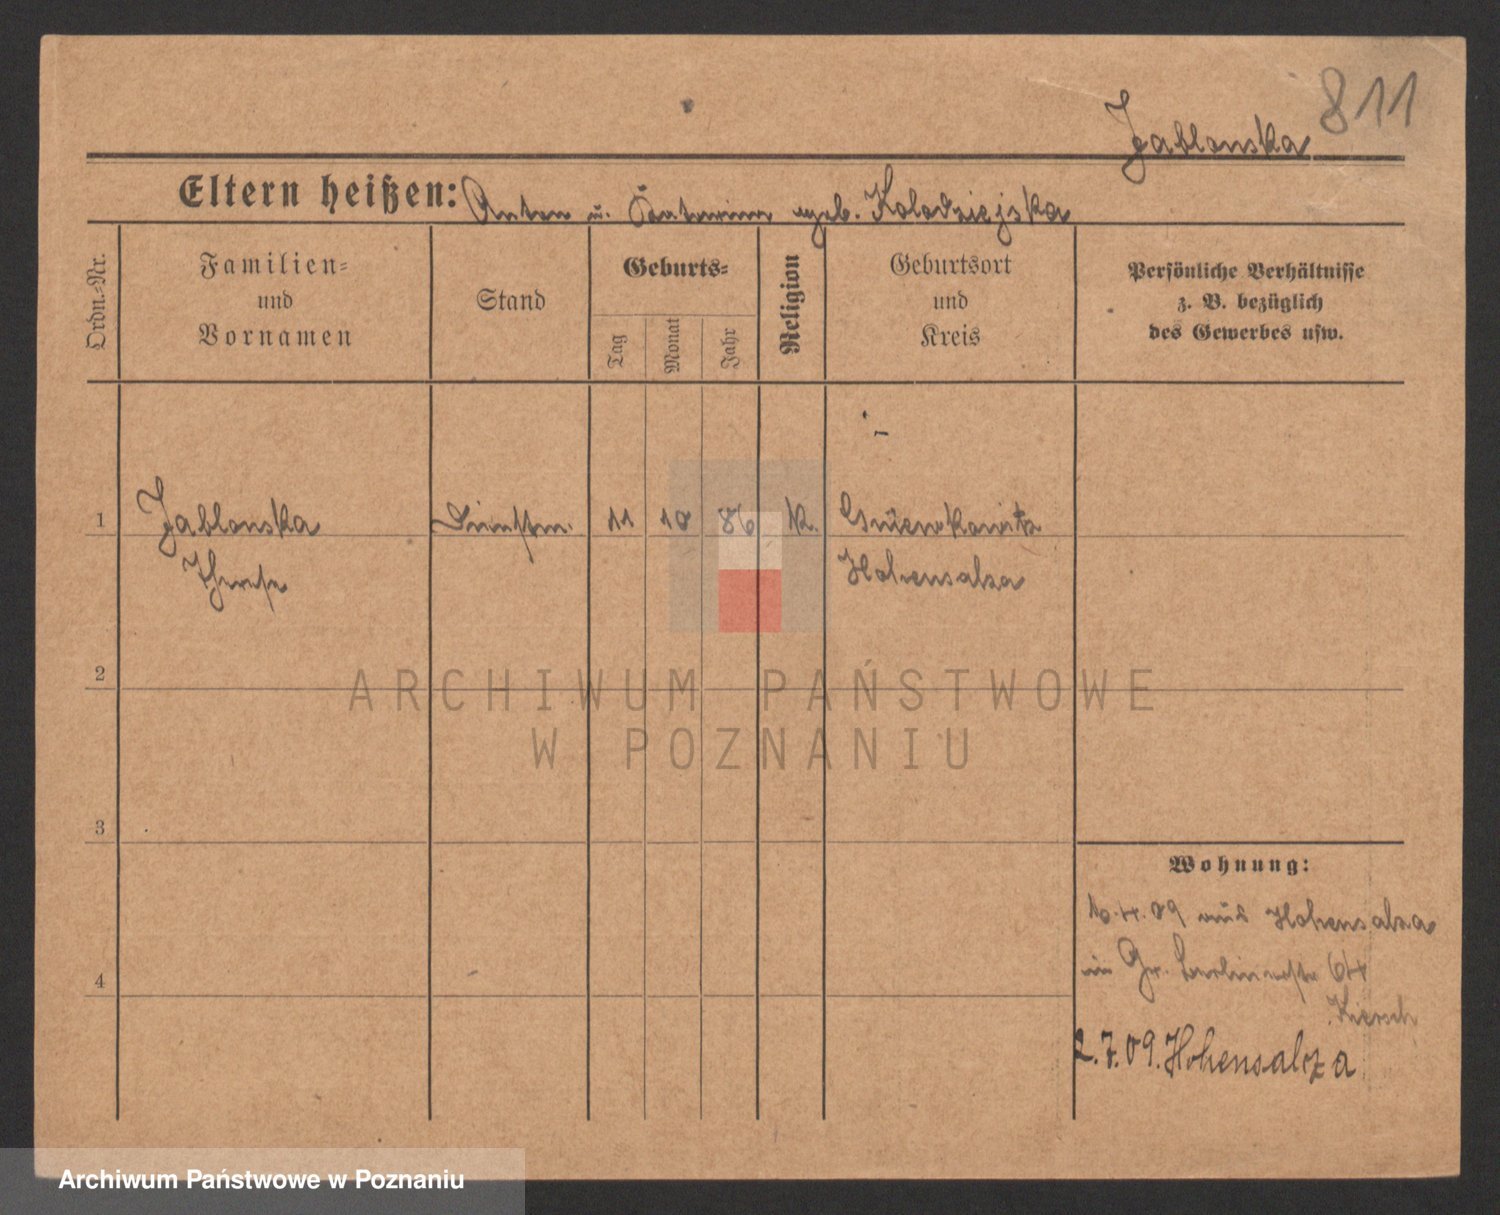 811
Jablonska
Eltern heißen: Anton u. Katarina geb. Kolodziejska
Ordn.-Nr.
Familien-
und
Vornamen
Stand
Geburts-
Tag
Monat
Jahr
Religion
Geburtsort
und
Kreis
Persönliche Verhältnisse
z. B. bezüglich
des Gewerbes usw.
1 Jablonska Dienstm. 11 10 86 k.
Therese Hohensalza
2
ARCHIWUM PAŃSTWOWE
W POZNANIU
3
Wohnung:
10.4.09 aus Hohensalza
in Gr. Berlinerstr 64
4
Kiersch
2.7.09. Hohensalza
Archiwum Państwowe w Poznaniu